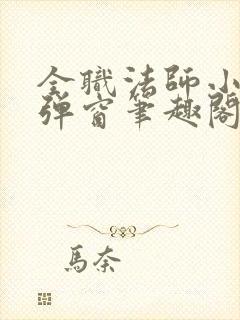 全職法師小
彈窗筆趣閣
馬奈